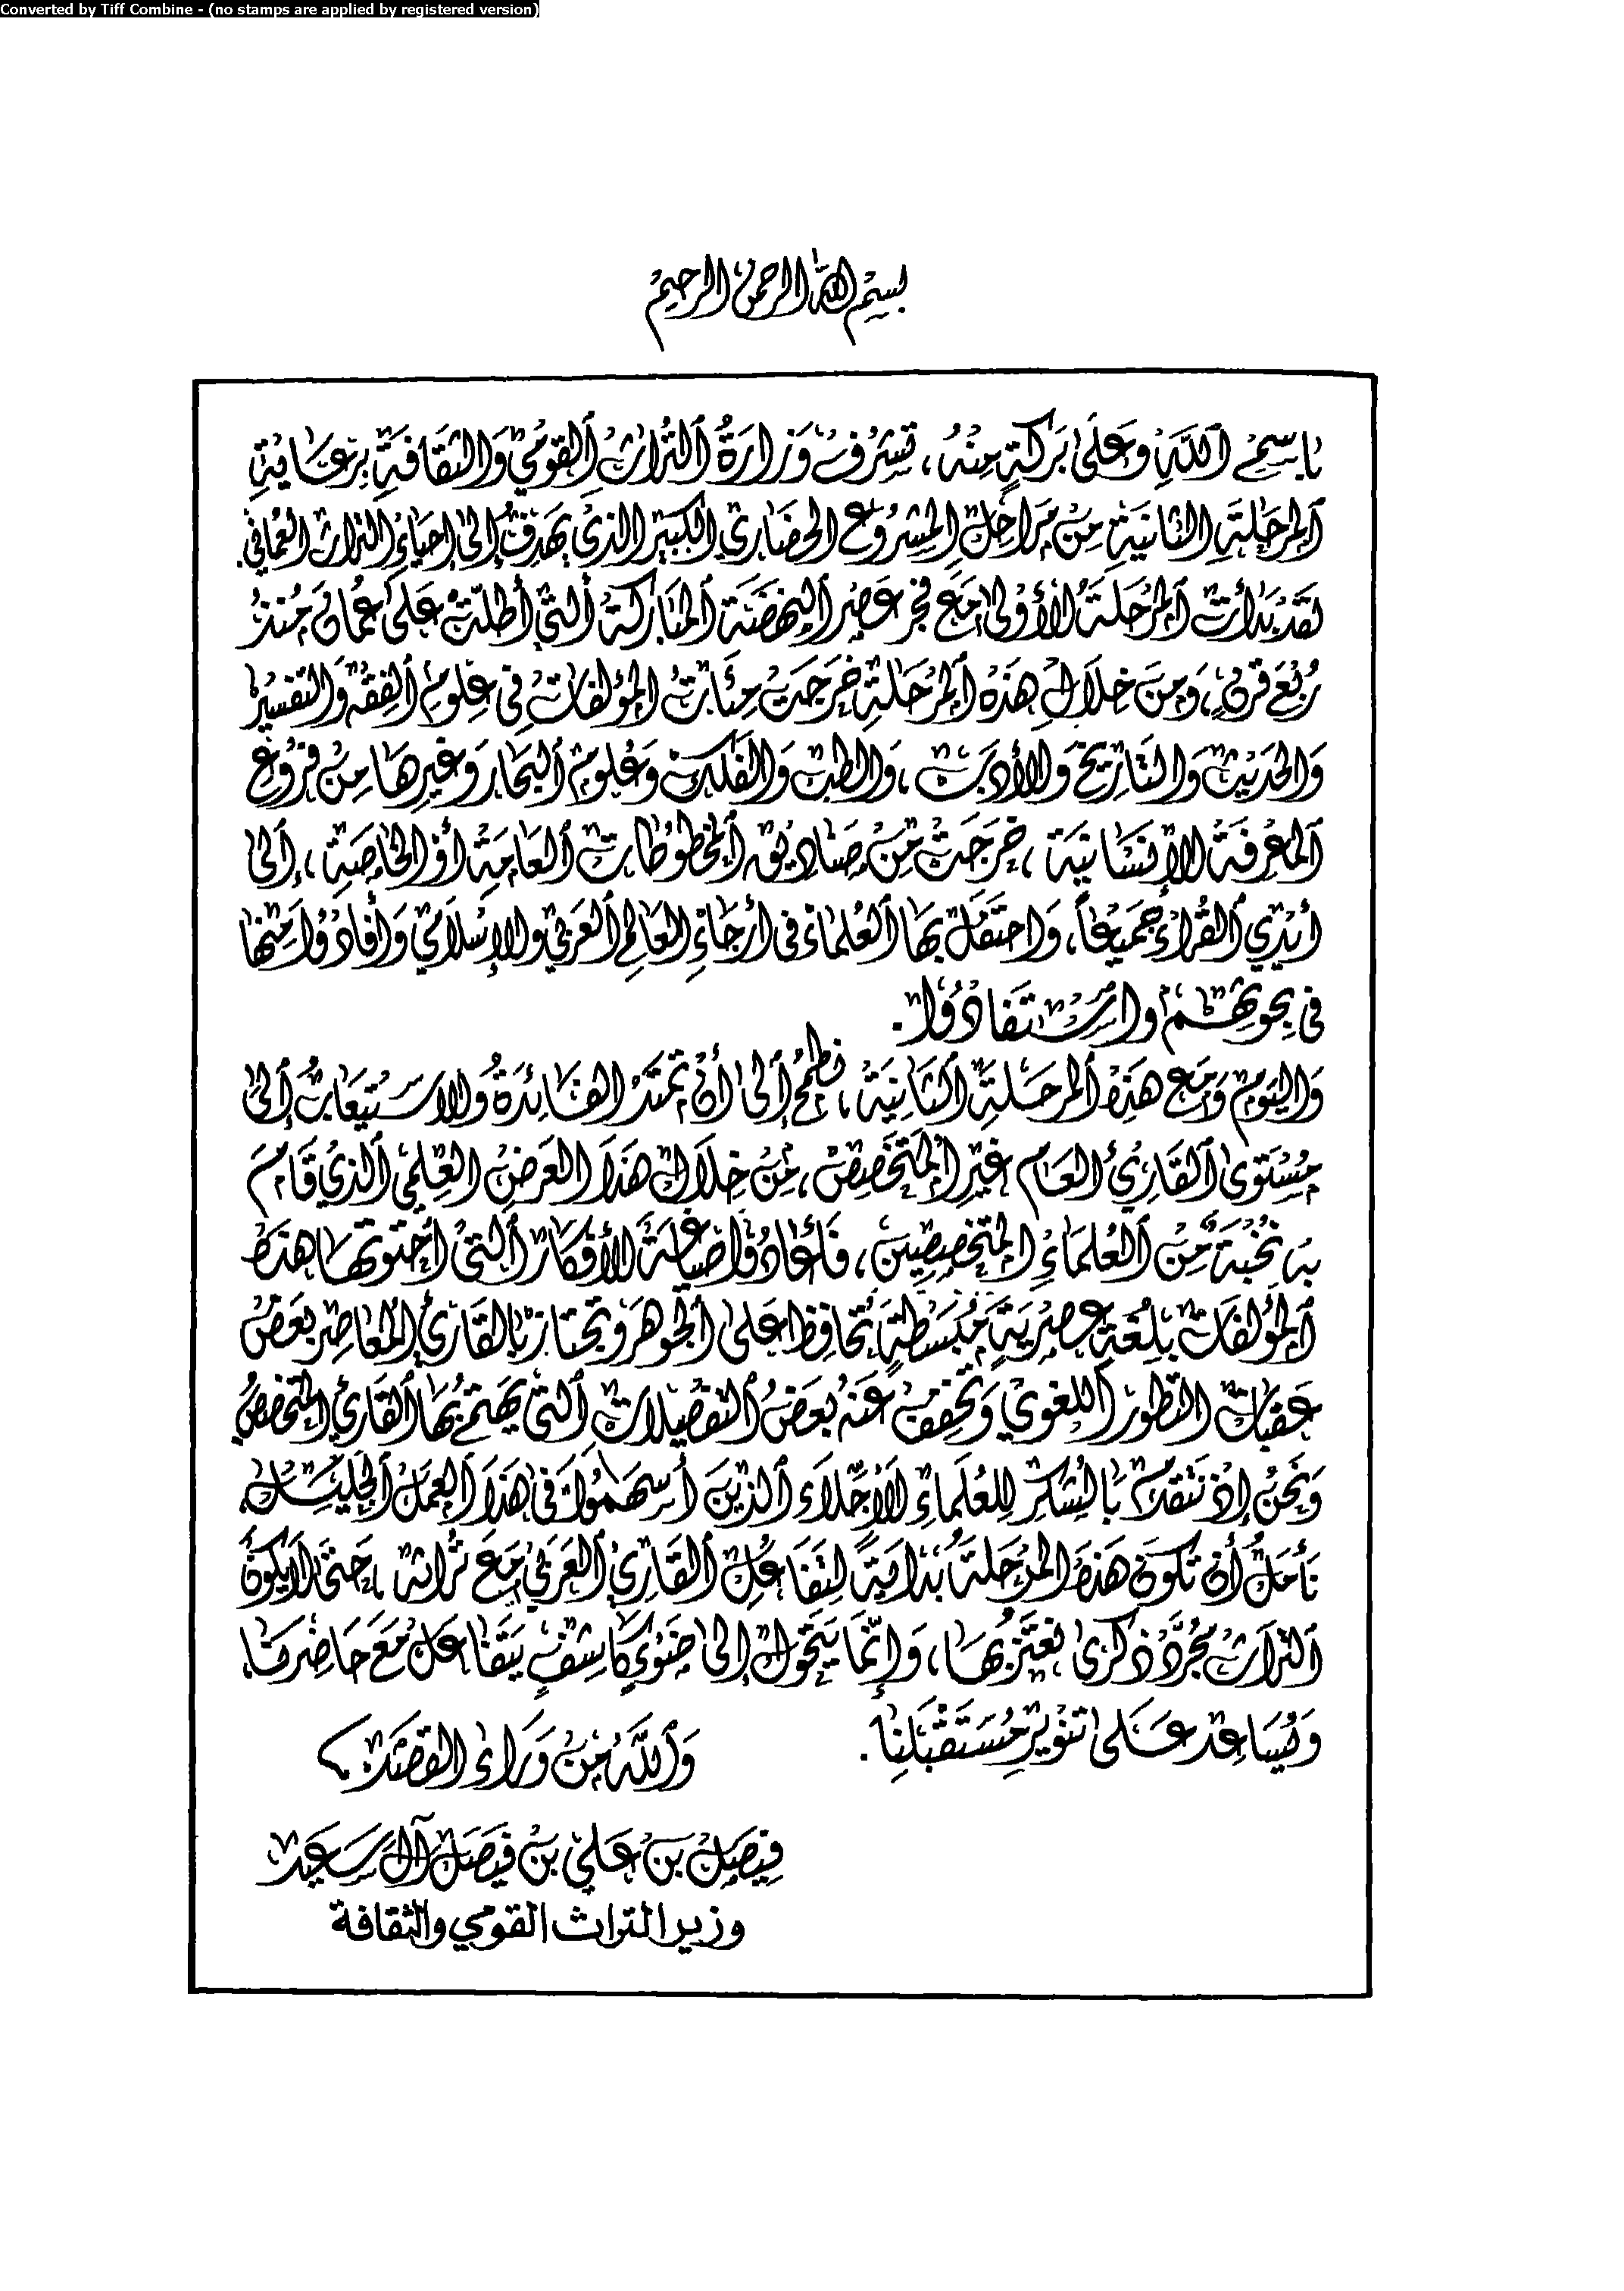 Converted by Tiff Combine - (no stamps are applied by registered version)
بسم الله الرحمن الرحيم
باسم الله وعلى بركة منه، تشرف وزارة التراث القومي والثقافة برعاية
المرحلة الثانية من مراحل المشروع الحضاري الكبير الذي يهدف إلى إحياء التراث العماني.
لقد بدأت المرحلة الأولى مع فجر عصر النهضة المباركة التي أطلت على عمان منذ
ربع قرن، ومن خلال هذه المرحلة خرجت مئات المؤلفات في علوم الفقه والتفسير
والحديث والتاريخ والأدب، والطب والفلك وعلوم البحار وغيرها من فروع
المعرفة الإنسانية، خرجت من صناديق المخطوطات العامة أو الخاصة، إلى
أيدي القراء جميعاً، واحتفل بها العلماء في أرجاء العالم العربي والإسلامي وأفادوا منها
في بحوثهم واستفادوا.
واليوم ومع هذه المرحلة الثانية، نطمح إلى أن تمتد الفائدة والاستيعاب إلى
مستوى القارئ العام غير المتخصص، من خلال هذا العرض العلمي الذي قام
به نخبة من العلماء المتخصصين، فأعادوا صياغة الأفكار التي احتوتها هذه
المؤلفات بلغة عصرية مبسطة تحافظ على الجوهر وتجتاز بالقارئ المعاصر بعض
عقبات التطور اللغوي وتخفف عنه بعض التفصيلات التي يهتم بها القارئ المتخصص
ونحن إذ نتقدم بالشكر للعلماء الأجلاء الذين أسهموا في هذا العمل الجليل،
نأمل أن تكون هذه المرحلة بداية لتفاعل القارئ العربي مع تراثه، حتى لا يكون
التراث مجرد ذكرى نعتز بها، وإنما يتحول إلى ضوء كاشف يتفاعل مع حاضرنا،
ويساعد على تنوير مستقبلنا.
والله من وراء القصد،
فيصل بن علي بن فيصل آل سعيد
وزير التراث القومي والثقافة